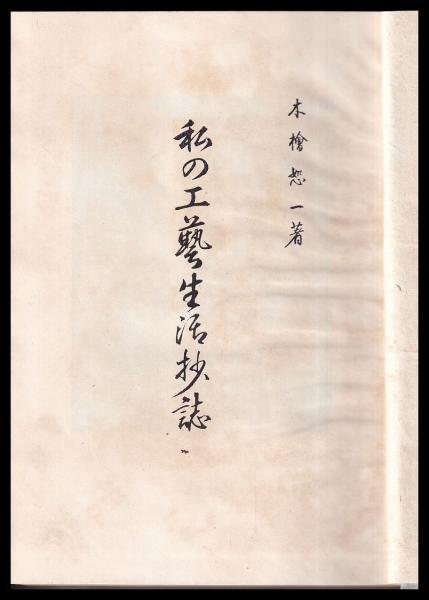 木檜恕一著
私の工藝生活抄誌